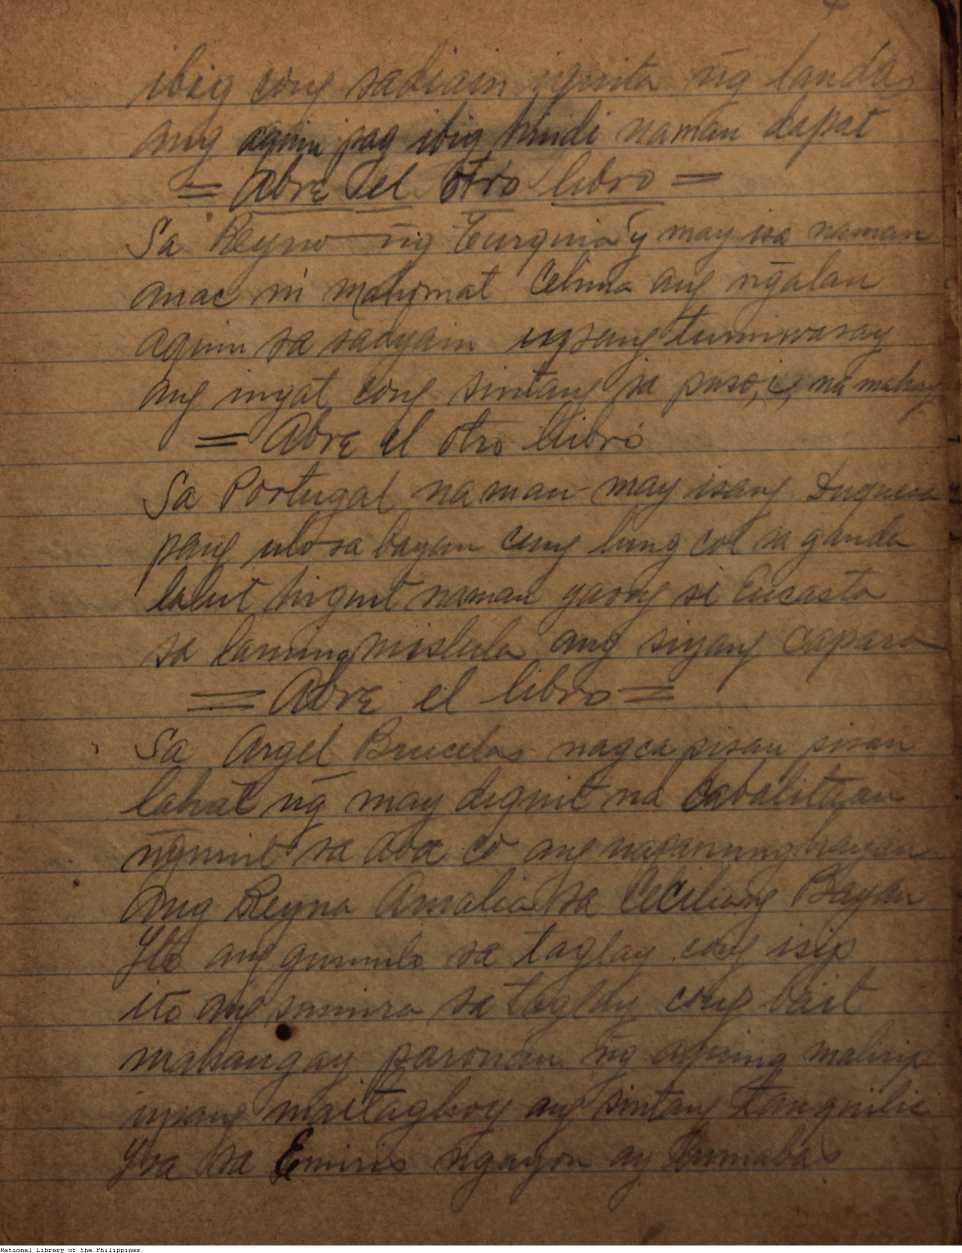 ibig cong sabiain nguita ng landas
ang aquin pag ibig hindi naman dapat
= Abre el otro libro =
Sa Reyno ng Turquia y may isa naman
anac ni Mahomat Celima ang ngalan
aquin sa sadyain upang tumiwasay
ang ingat cong sintang sa puso, na
= Abre el otro libro
Sa Portugal naman may isang Duquesa
pang ulo sa bayan cung lung cot sa ganda
labit higuit naman yaong si Eucasta
sa laming mistula ang siyang capara
= Abre el libro =
Sa Argel Brucelas nagcapisan pisan
lahat ng may diquit na cabalitaan
ngunit sa aba co ang
ang Reyna Amalia sa Ceciliang Bayan
Ito ang gumulo sa taglay cong isip
ito ang sumira sa taglay cong bait
mahangay paronan ng aquing malirip
upang maitaghoy ang sintang tanquilic
Iba sa Emiris ngayon ay bumabas
National Library of the Philippines